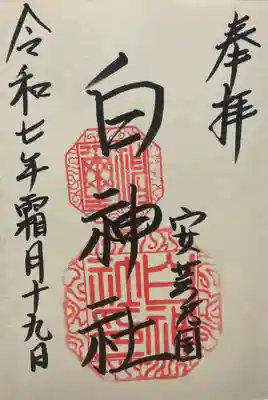 奉拝
安芸之国
白神社
令和七年霜月十九日